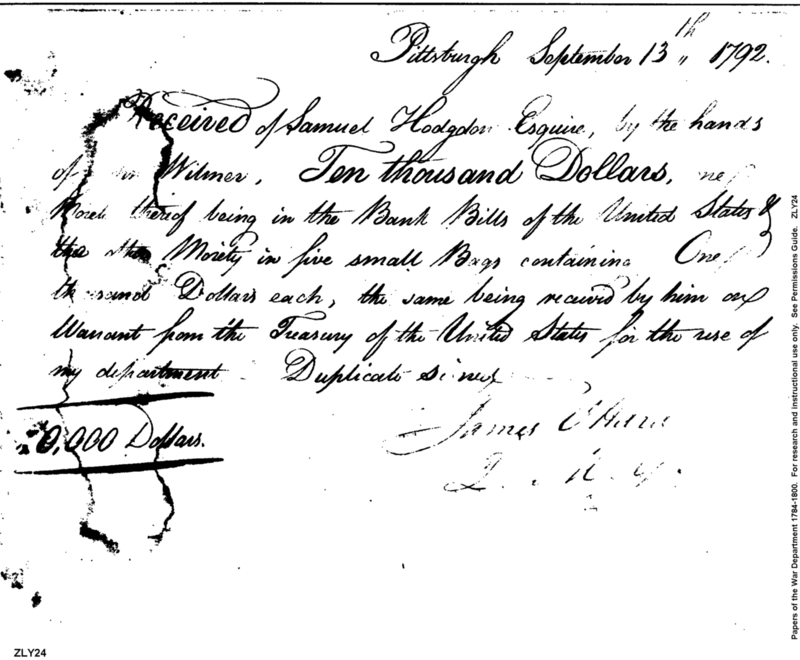 Pittsburgh September 13th 1792.
Received of Samuel Hodgdon Esquire, by the hands
of Wilmer, Ten thousand Dollars,
thereof being in the Bank Bills of the United States &
the Moiety in five small Bags containing One
Dollars each, the same being received by him on
Warrant from the Treasury of the United States for the use of
my department Duplicate
0,000 Dollars.
James O'Hara
Papers of the War Department 1784-1800. For research and instructional use only. See Permissions Guide. ZLY24
ZLY24